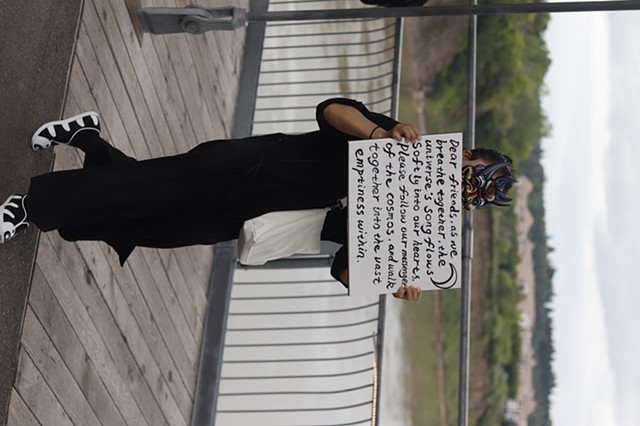 Dear friends, as we
breathe together, the
universe's song flows
softly into our hearts.
Please follow our messenger
of the cosmos, and walk
together into the vast
emptiness within.